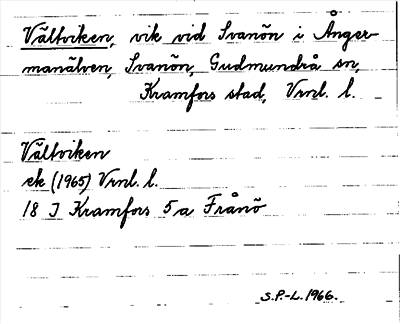 Vältviken, vik vid Svanön i Ånger-
manälven, Svanön, Gudmundrå sn,
Kramfors stad, Vrnl. l.
Vältviken
ek (1965) Vrnl. l.
18 I Kramfors 5a Frånö
S.P.-L. 1966.